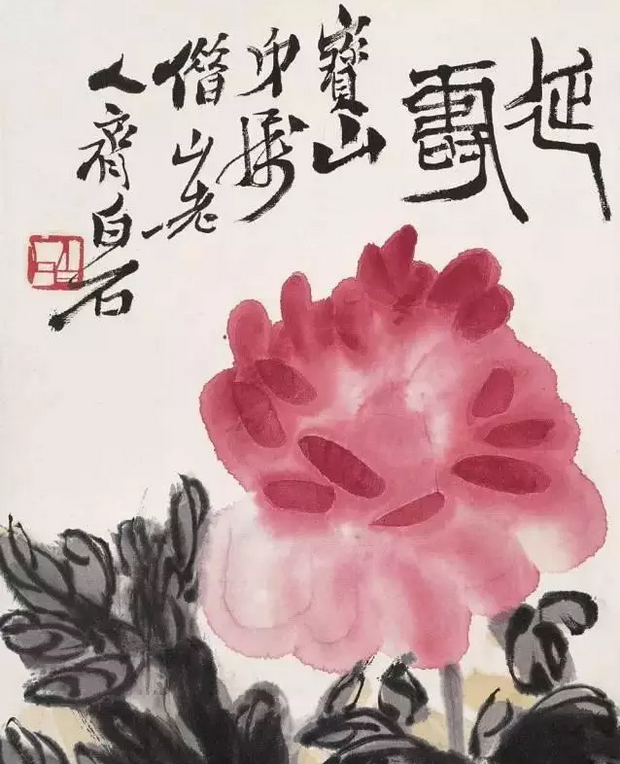 延壽
寶山
屬
借山老
人齊白石